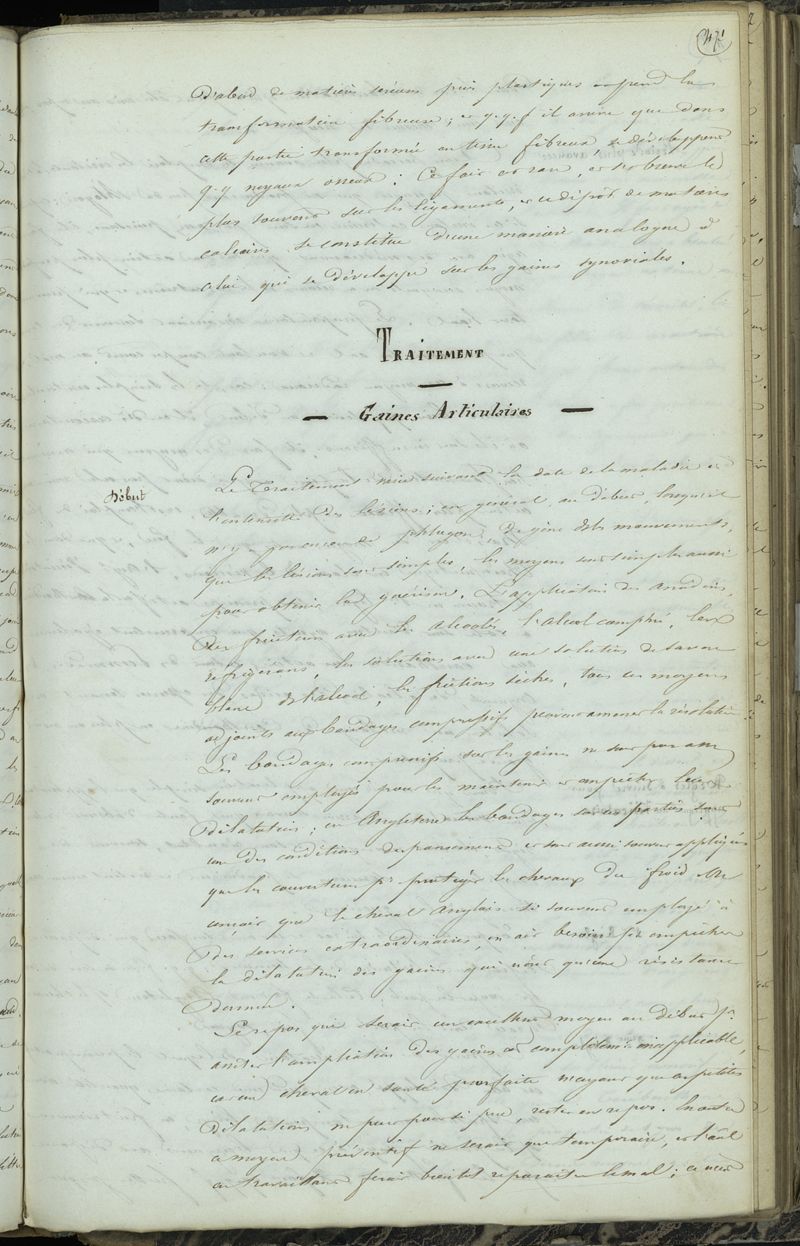 471
D'abord de matières séreuses puis plastiques et prend la
transformation fibreuse ; et q.q.f il arrive que dans
cette partie transformée en tissu fibreux, se développent
q.q noyaux osseux : Ce fait est rare, et s'observe le
plus souvent sur les ligaments, et ce dépôt de matières
calcaires se constitue d'une manière analogue à
celui qui se développe sur les gaines synoviales.
TRAITEMENT
— Gaines Articulaires —
Début
Le Traitement varie suivant la date de la maladie et
l'intensité des lésions ; en général, au début, lorsqu'il
n'y a pas encore de phlegmon, de gêne dans les mouvements,
que les lésions sont simples, les moyens sont simples aussi
pour obtenir la guérison. L'application des
des frictions avec les alcools, l'alcool camphré, les
réfrigérants, les solutions avec une solution de savon
dans de l'alcool, les frictions sèches, tous ces moyens
adjoints aux bandages compressifs peuvent amener la résolution
Les bandages compressifs sur les gaines ne sont pas assez
souvent employés pour les maintenir et empêcher leur
dilatation ; en Angleterre les bandages sur ces parties sont
une des conditions de pansement et sont aussi souvent appliqués
que les couvertures pr protéger les chevaux du froid. On
conçoit que le cheval Anglais si souvent employé à
des services extraordinaires, en ait besoin pr empêcher
la dilatation des gaines qui n'ont qu'une résistance
donnée.
Le repos qui serait un excellent moyen au début pr
arrêter l'ampliation des gaines est complètement inapplicable,
car un cheval en santé parfaite n'ayant que de petites
dilatations ne peut pour si peu, rester en repos. En outre
ce moyen préventif ne serait que temporaire, et
en travaillant ferait bientôt reparaître le mal ; ce n'est